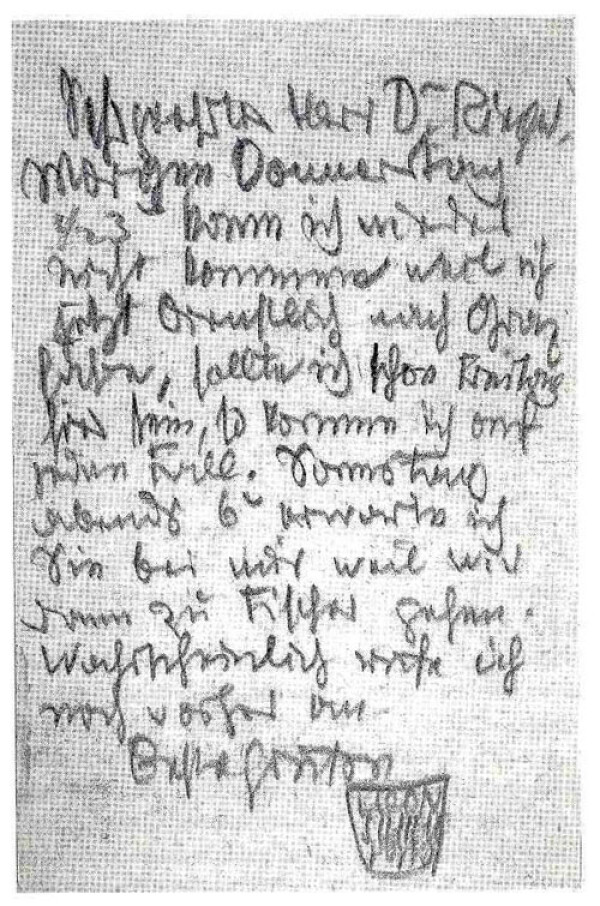 Sehr geehrter Herr Dr Rieger,
morgen Donnerstag
1/2 3 kann ich wieder
nicht kommen weil ich
jetzt beruflich nach
fahre, sollte ich schon Freitag
hier sein, so komme ich auf
jeden Fall. Samstag
abends 6h erwarte ich
Sie bei mir weil wir
dann zu Fischer gehen.
Wahrscheinlich rufe ich
noch vorher an
Beste Grüße